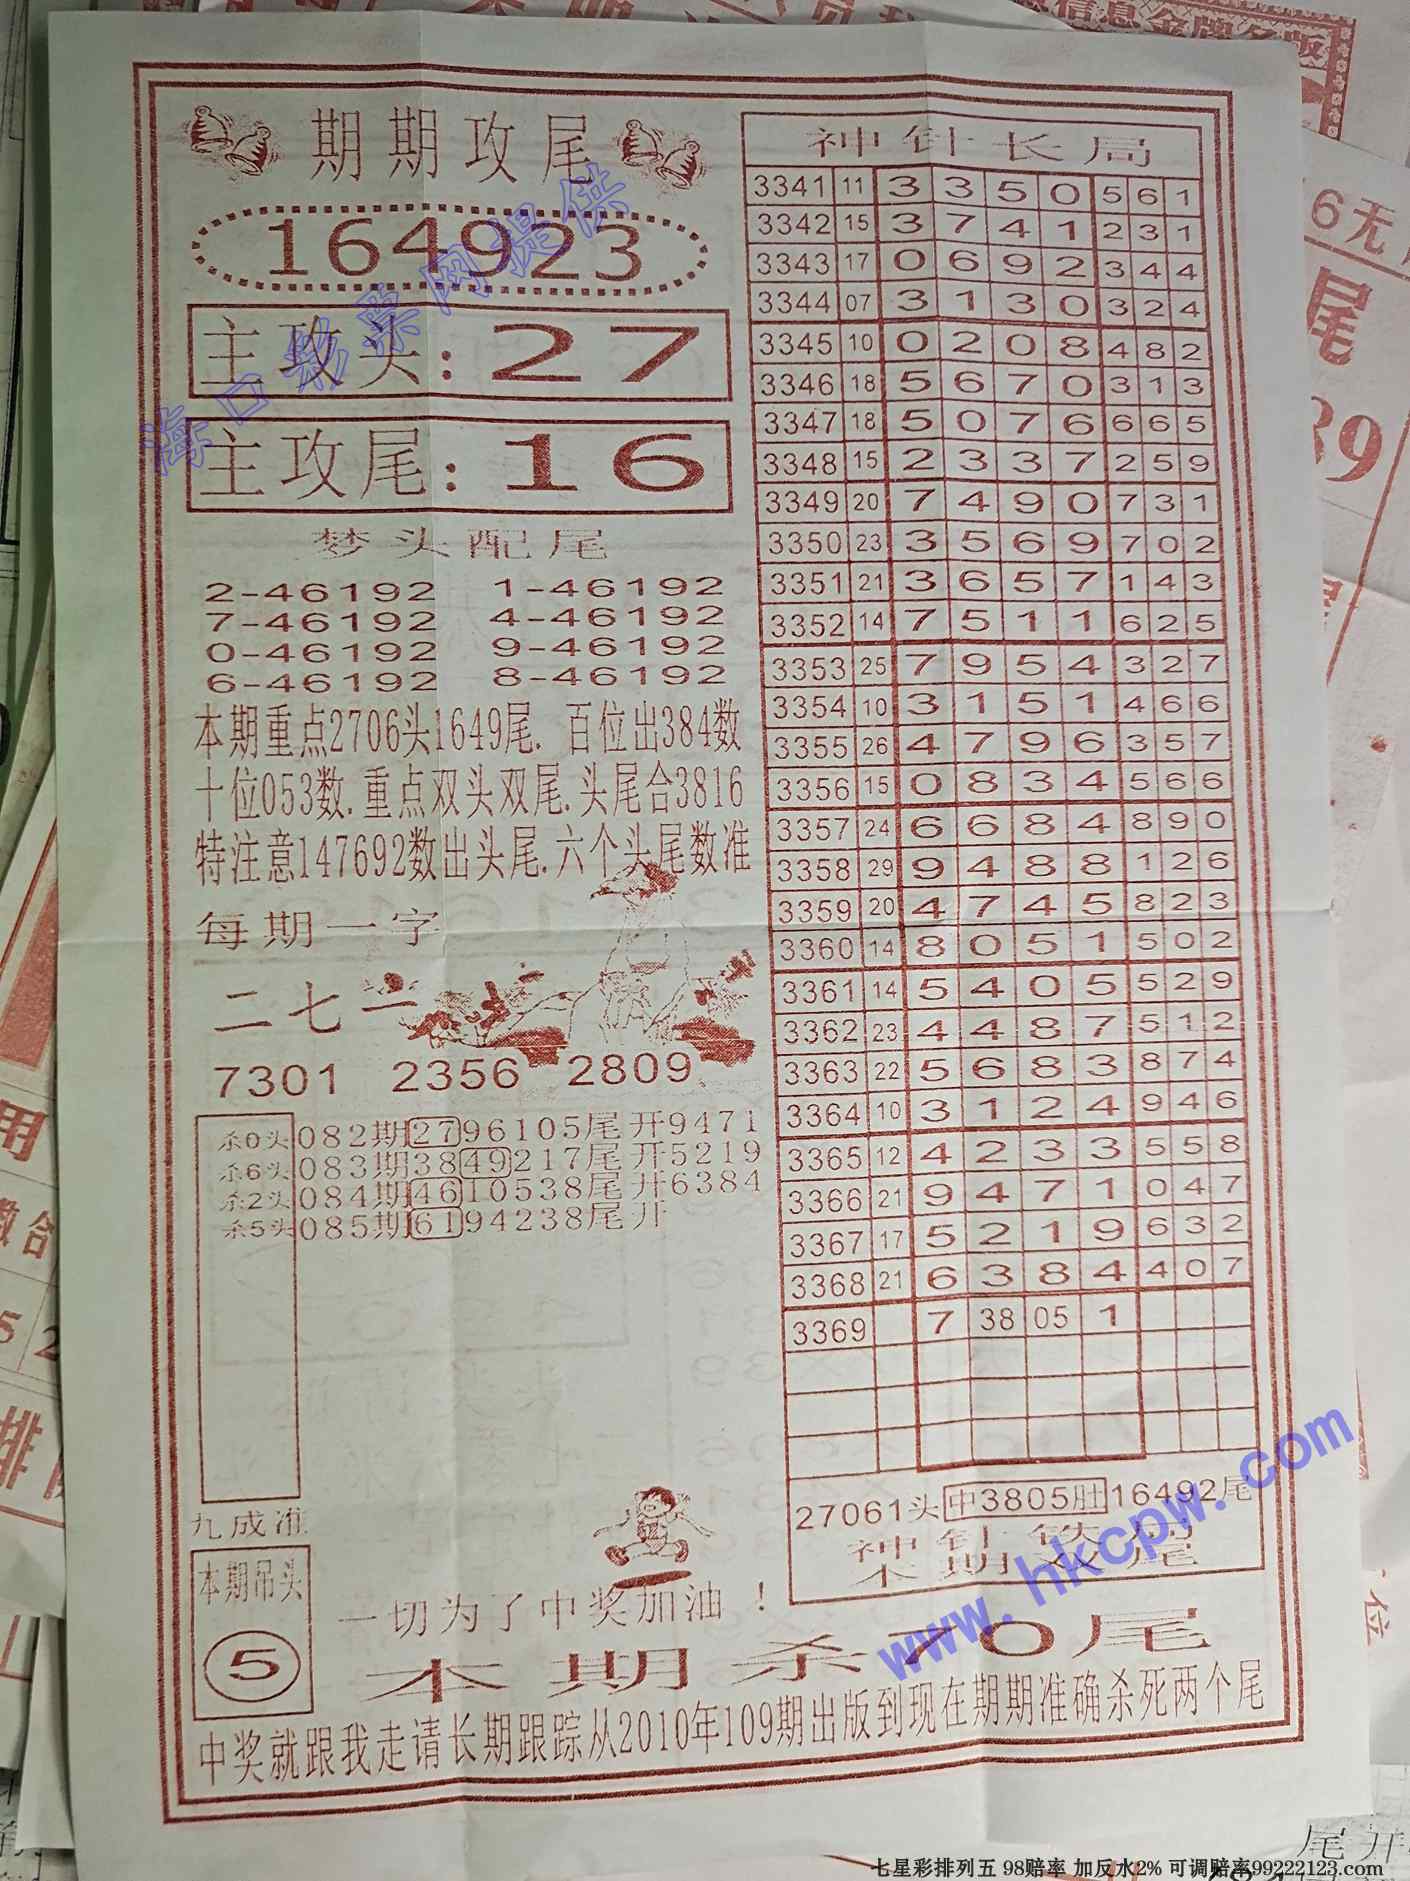 期期攻尾
164923
主攻头:27
主攻尾:16
梦头配尾
2-46192 1-46192
7-46192 4-46192
0-46192 9-46192
6-46192 8-46192
本期重点2706头1649尾. 百位出384数
十位053数.重点双头双尾.头尾合3816
特注意147692数出头尾.六个头尾数准
每期一字
二七一
7301 2356 2809
杀0头 082期2796105尾开9471
杀6头 083期3849217尾开5219
杀2头 084期4610538尾开6384
杀5头 085期6194238尾开
九成准
本期吊头
5
一切为了中奖加油!
神针长局
3341 11 3 3 5 0 5 6 1
3342 15 3 7 4 1 2 3 1
3343 17 0 6 9 2 3 4 4
3344 07 3 1 3 0 3 2 4
3345 10 0 2 0 8 4 8 2
3346 18 5 6 7 0 3 1 3
3347 18 5 0 7 6 6 6 5
3348 15 2 3 3 7 2 5 9
3349 20 7 4 9 0 7 3 1
3350 23 3 5 6 9 7 0 2
3351 21 3 6 5 7 1 4 3
3352 14 7 5 1 1 6 2 5
3353 25 7 9 5 4 3 2 7
3354 10 3 1 5 1 4 6 6
3355 26 4 7 9 6 3 5 7
3356 15 0 8 3 4 5 6 6
3357 24 6 6 8 4 8 9 0
3358 29 9 4 8 8 1 2 6
3359 20 4 7 4 5 8 2 3
3360 14 8 0 5 1 5 0 2
3361 14 5 4 0 5 5 2 9
3362 23 4 4 8 7 5 1 2
3363 22 5 6 8 3 8 7 4
3364 10 3 1 2 4 9 4 6
3365 12 4 2 3 3 5 5 8
3366 21 9 4 7 1 0 4 7
3367 17 5 2 1 9 6 3 2
3368 21 6 3 8 4 4 0 7
3369 7 38 05 1
27061头中3805肚16492尾
神针铁局
本期双尾
本期杀70尾
中奖就跟我走请长期跟踪从2010年109期出版到现在期期准确杀死两个尾
海口彩票网提供
www.hkcpw.com
七星彩排列五 98赔率 加反水2% 可调赔率99222123.com
尾开